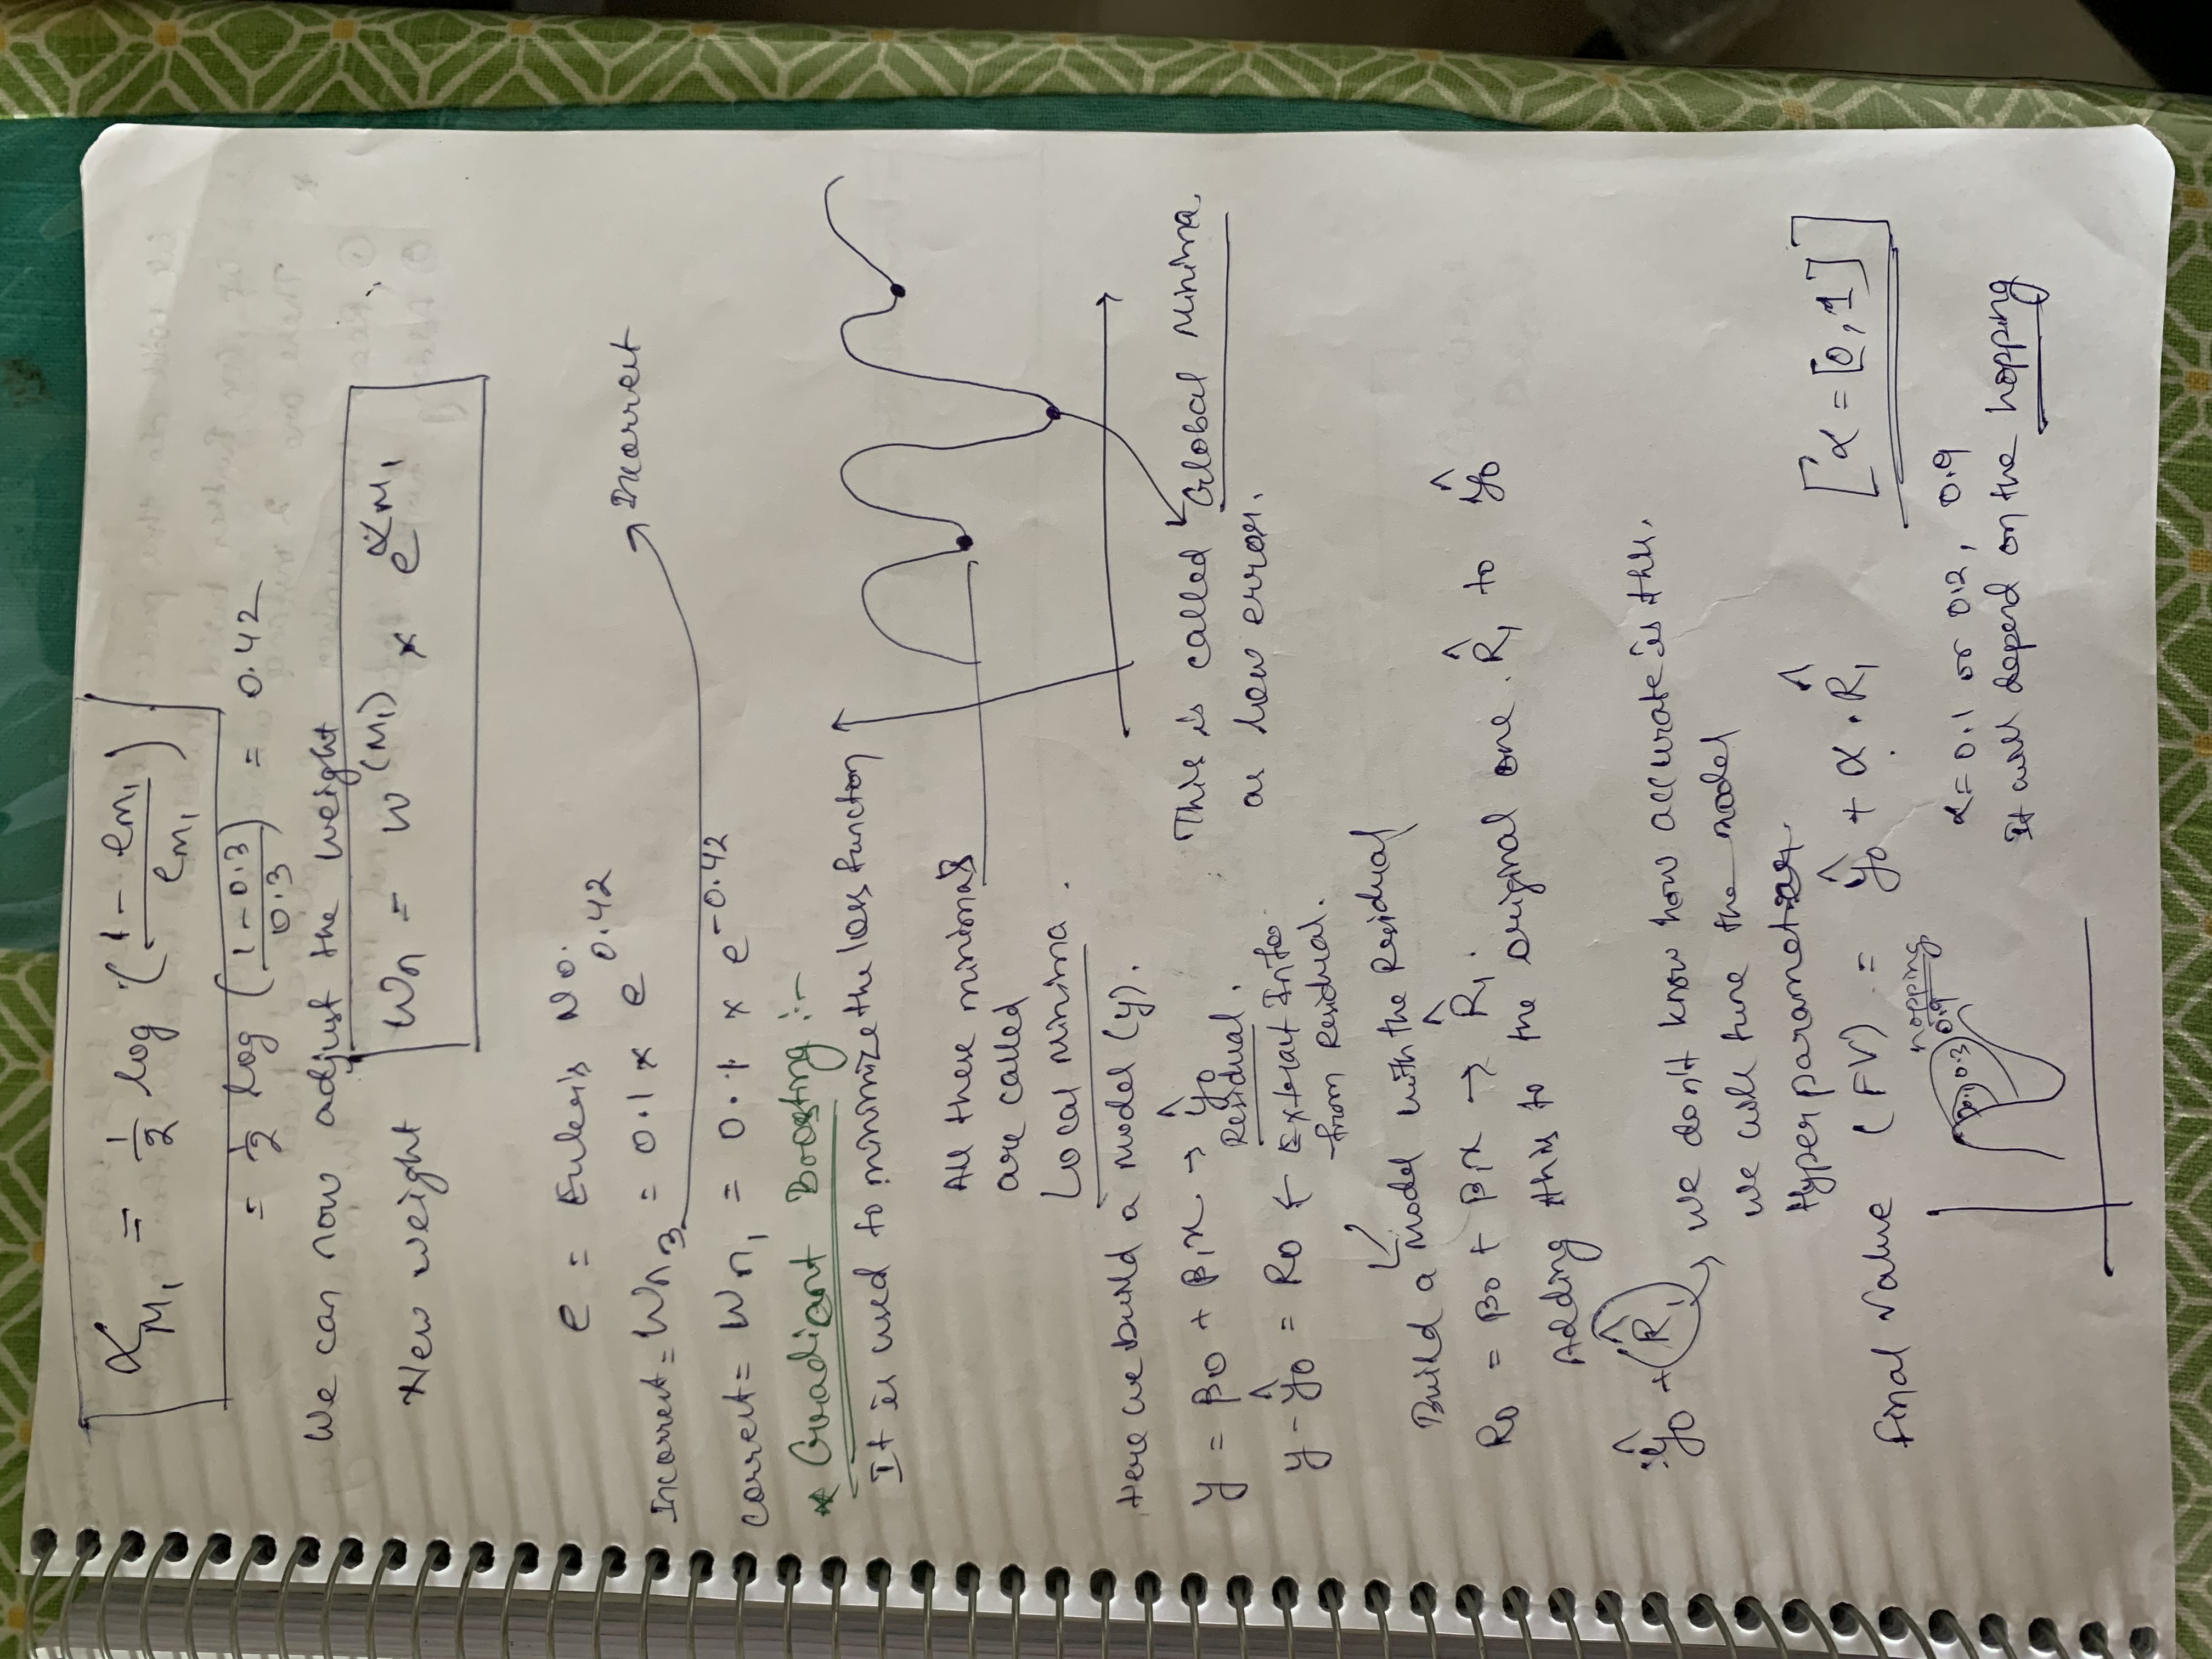 α_M₁ = 1/2 log (1 - e_M₁ / e_M₁)
= 1/2 log (1-0.3 / 0.3) = 0.42
We can now adjust the weight
New weight Wn = W^(M₁) × e^αM₁
e = Euler's No.
Incorrect = Wn₃ = 0.1 × e^0.42 Incorrect
Correct = Wn₁ = 0.1 × e^-0.42
* Gradient Boosting :-
It is used to minimize the loss function
All these minimas
are called
Local Minima.
Here we build a model (y).
y = β0 + β₁x → ŷ0
This is called Global Minima
as low error.
Residual.
y - ŷ0 = R0 ← Extract Info
from Residual.
Build a Model with the Residual
R0 = β0 + β₁x → R̂₁.
Adding this to the original one. R̂₁ to ŷ0
ŷ0 + R̂₁ → We don't know how accurate is this.
We will tune the model
Hyperparameter.
Final Value (FV) = ŷ0 + α . R̂₁ [α = [0,1]]
hopping
0.1 0.3 0.9
α = 0.1 or 0.2, 0.9
It will depend on the hopping